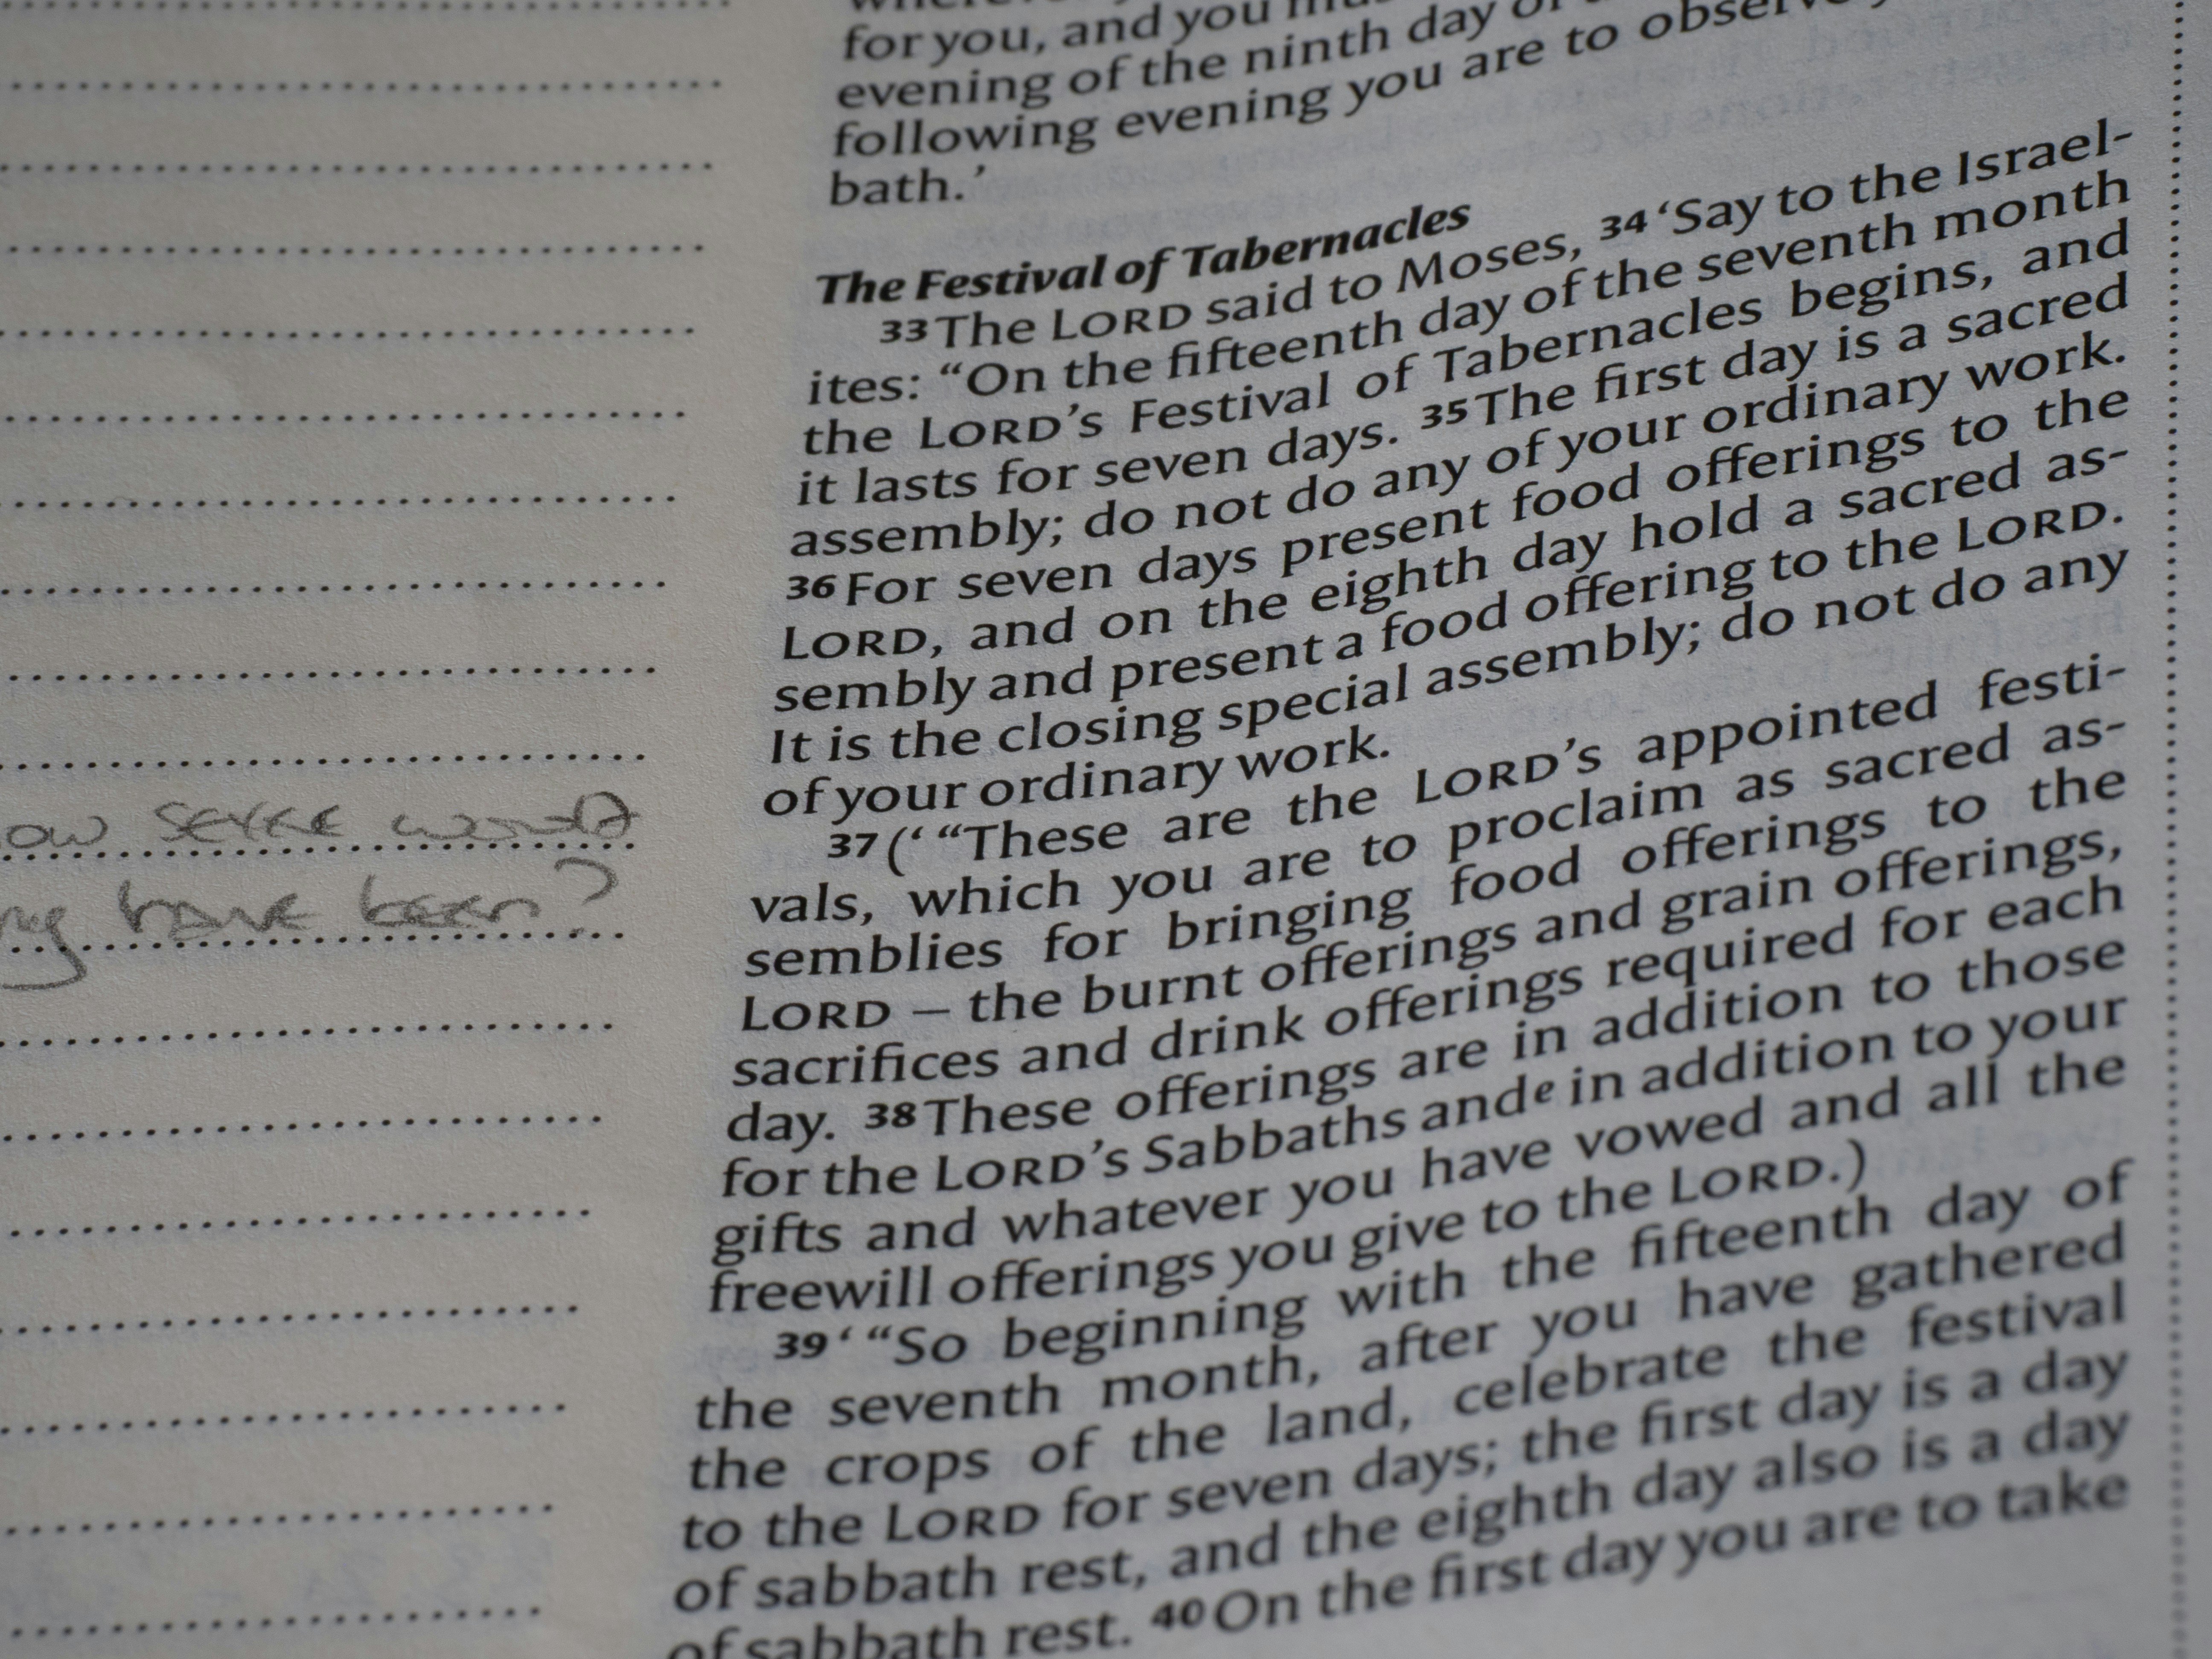 for you, and you
evening of the ninth day
following evening you are to observe
bath.’
The Festival of Tabernacles
33 The LORD said to Moses, 34 ‘Say to the Israel-
ites: “On the fifteenth day of the seventh month
the LORD’s Festival of Tabernacles begins, and
it lasts for seven days. 35 The first day is a sacred
assembly; do not do any of your ordinary work.
36 For seven days present food offerings to the
LORD, and on the eighth day hold a sacred as-
sembly and present a food offering to the LORD.
It is the closing special assembly; do not do any
of your ordinary work.
37 (‘ “These are the LORD’s appointed festi-
vals, which you are to proclaim as sacred as-
semblies for bringing food offerings to the
LORD – the burnt offerings and grain offerings,
sacrifices and drink offerings required for each
day. 38 These offerings are in addition to those
for the LORD’s Sabbaths and e in addition to your
gifts and whatever you have vowed and all the
freewill offerings you give to the LORD.)
39 ‘ “So beginning with the fifteenth day of
the seventh month, after you have gathered
the crops of the land, celebrate the festival
to the LORD for seven days; the first day is a day
of sabbath rest, and the eighth day also is a day
of sabbath rest. 40 On the first day you are to take
would
have been?